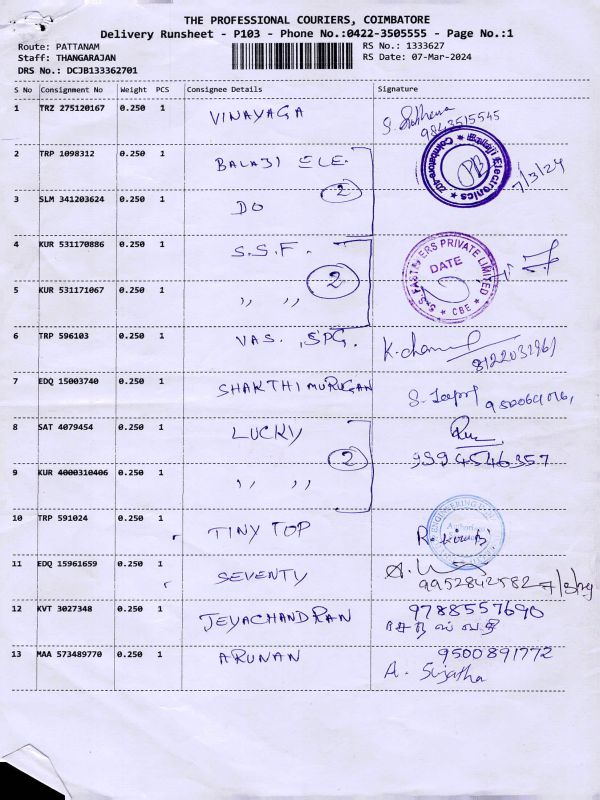 THE PROFESSIONAL COURIERS, COIMBATORE
Delivery Runsheet - P103 - Phone No.:0422-3505555 - Page No.:1
Route: PATTANAM
RS No.: 1333627
Staff: THANGARAJAN
RS Date: 07-Mar-2024
DRS No.: DCJB133362701
S No Consignment No Weight PCS Consignee Details Signature
1 TRZ 275120167 0.250 1 VINAYAGA
9843515545
2 TRP 1098312 0.250 1 BALAJI ELE.
Balaji Electronics
Coimbatore
7/3/24
2
3 SLM 341203624 0.250 1 DO
4 KUR 531170886 0.250 1 S.S.F.
S.S FASTENERS PRIVATE LIMITED
DATE
CBE
2
5 KUR 531171067 0.250 1 ,, ,,
6 TRP 596103 0.250 1 VAS. SPG.
7 EDQ 15003740 0.250 1 SHAKTHIMURUGAN
8 SAT 4079454 0.250 1 LUCKY
9994546357
2
9 KUR 4000310406 0.250 1 ,, ,,
10 TRP 591024 0.250 1 TINY TOP
11 EDQ 15961659 0.250 1 SEVENTY
9952842582 7/3/24
12 KVT 3027348 0.250 1 JEYACHANDRAN
9788557690
13 MAA 573489770 0.250 1 ARUNAN
9500891772
A. Sujatha